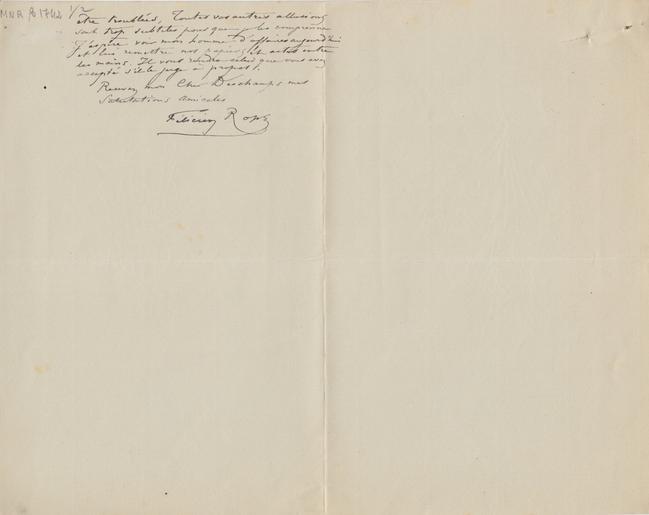 MNR
1/2
être troublées, Toutes vos autres allusions
sont trop subtiles pour que je les comprenne
J'espère voir mon homme d'affaires aujourd'hui
et lui remettre nos papiers, et actes entre
les mains. Il vous rendra celui que vous avez
accepté s'il le juge à propos.
Recevez mon Cher Deschamps mes
Salutations amicales
Félicien Rops